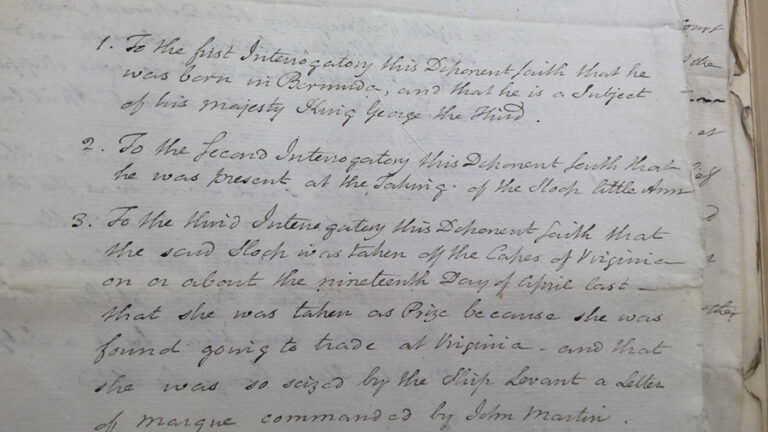 1. To the first Interrogatory this Deponent saith that he
was born in Bermuda, and that he is a Subject
of his Majesty King George the Third.
2. To the Second Interrogatory this Deponent saith that
he was present at the Taking of the Sloop little Ann
3. To the third Interrogatory this Deponent saith that
the said Sloop was taken off the Capes of Virginia
on or about the nineteenth Day of April last -
that she was taken as Prize because she was
found going to trade at Virginia - and that
she was so seized by the Ship Levant a Letter
of Marque commanded by John Martin.
Court
the
at